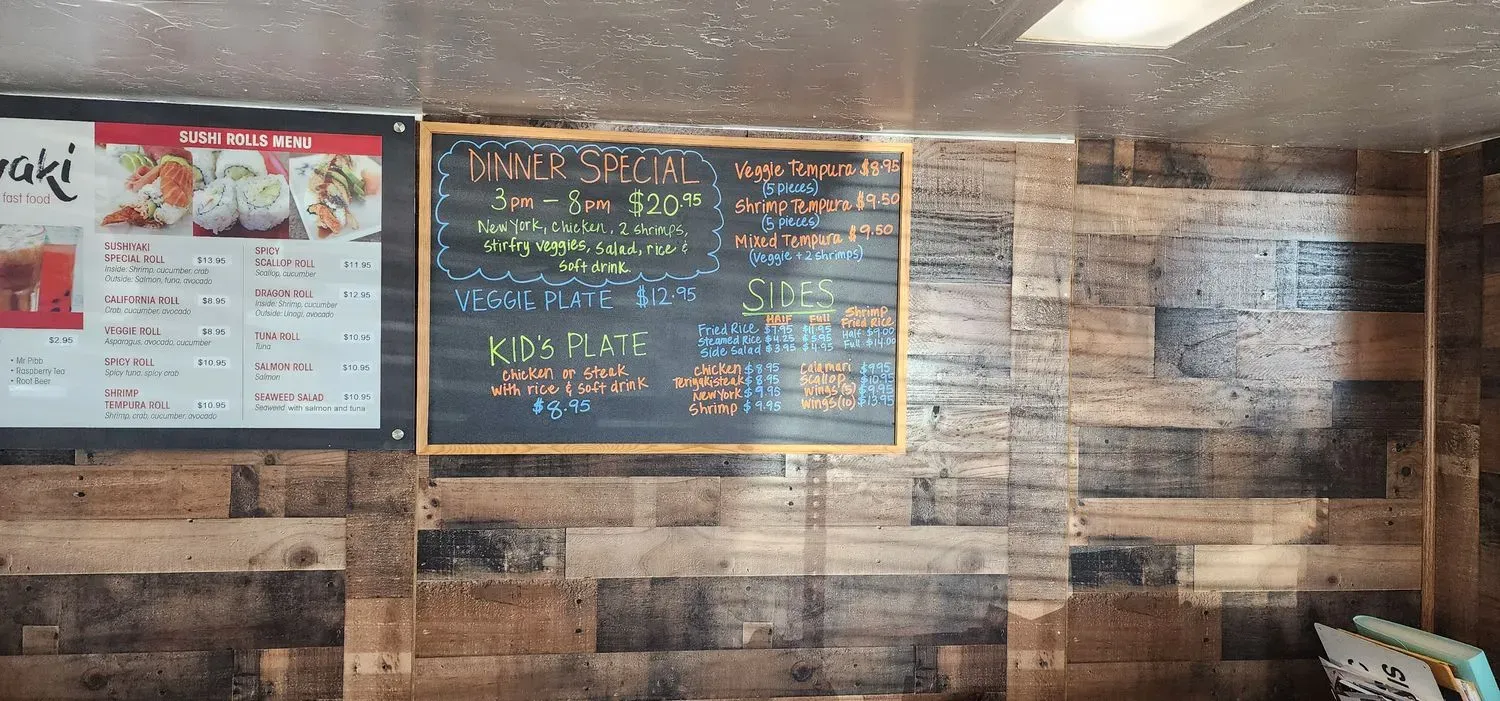 yaki
fast food
$2.95
• Mr Pibb
• Raspberry Tea
• Root Beer
SUSHI ROLLS MENU
SUSHIYAKI
SPECIAL ROLL $13.95
Inside: Shrimp, cucumber, crab
Outside: Salmon, tuna, avocado
CALIFORNIA ROLL $8.95
Crab, cucumber, avocado
VEGGIE ROLL $8.95
Asparagus, avocado, cucumber
SPICY ROLL $10.95
Spicy tuna, spicy crab
SHRIMP
TEMPURA ROLL $10.95
Shrimp, crab, cucumber, avocado
SPICY
SCALLOP ROLL $11.95
Scallop, cucumber
DRAGON ROLL $12.95
Inside: Shrimp, cucumber
Outside: Unagi, avocado
TUNA ROLL $10.95
Tuna
SALMON ROLL $10.95
Salmon
SEAWEED SALAD $10.95
Seaweed with salmon and tuna
DINNER SPECIAL
3pm - 8pm $20.95
New York, chicken, 2 shrimps,
stirfry veggies, salad, rice &
soft drink.
VEGGIE PLATE $12.95
KID'S PLATE
chicken or steak
with rice & soft drink
$8.95
Veggie Tempura $8.95
(5 pieces)
Shrimp Tempura $9.50
(5 pieces)
Mixed Tempura $9.50
(Veggie + 2 shrimps)
SIDES
HALF Full
Fried Rice $7.95 $11.95
Steamed Rice $4.25 $5.95
Side Salad $3.95 $4.95
Shrimp
Fried Rice
Half: $9.00
Full: $14.00
chicken $8.95
Teriyaki steak $8.95
New York $9.95
Shrimp $9.95
calamari $9.95
scallop $10.95
wings(5) $9.95
wings(10) $13.95